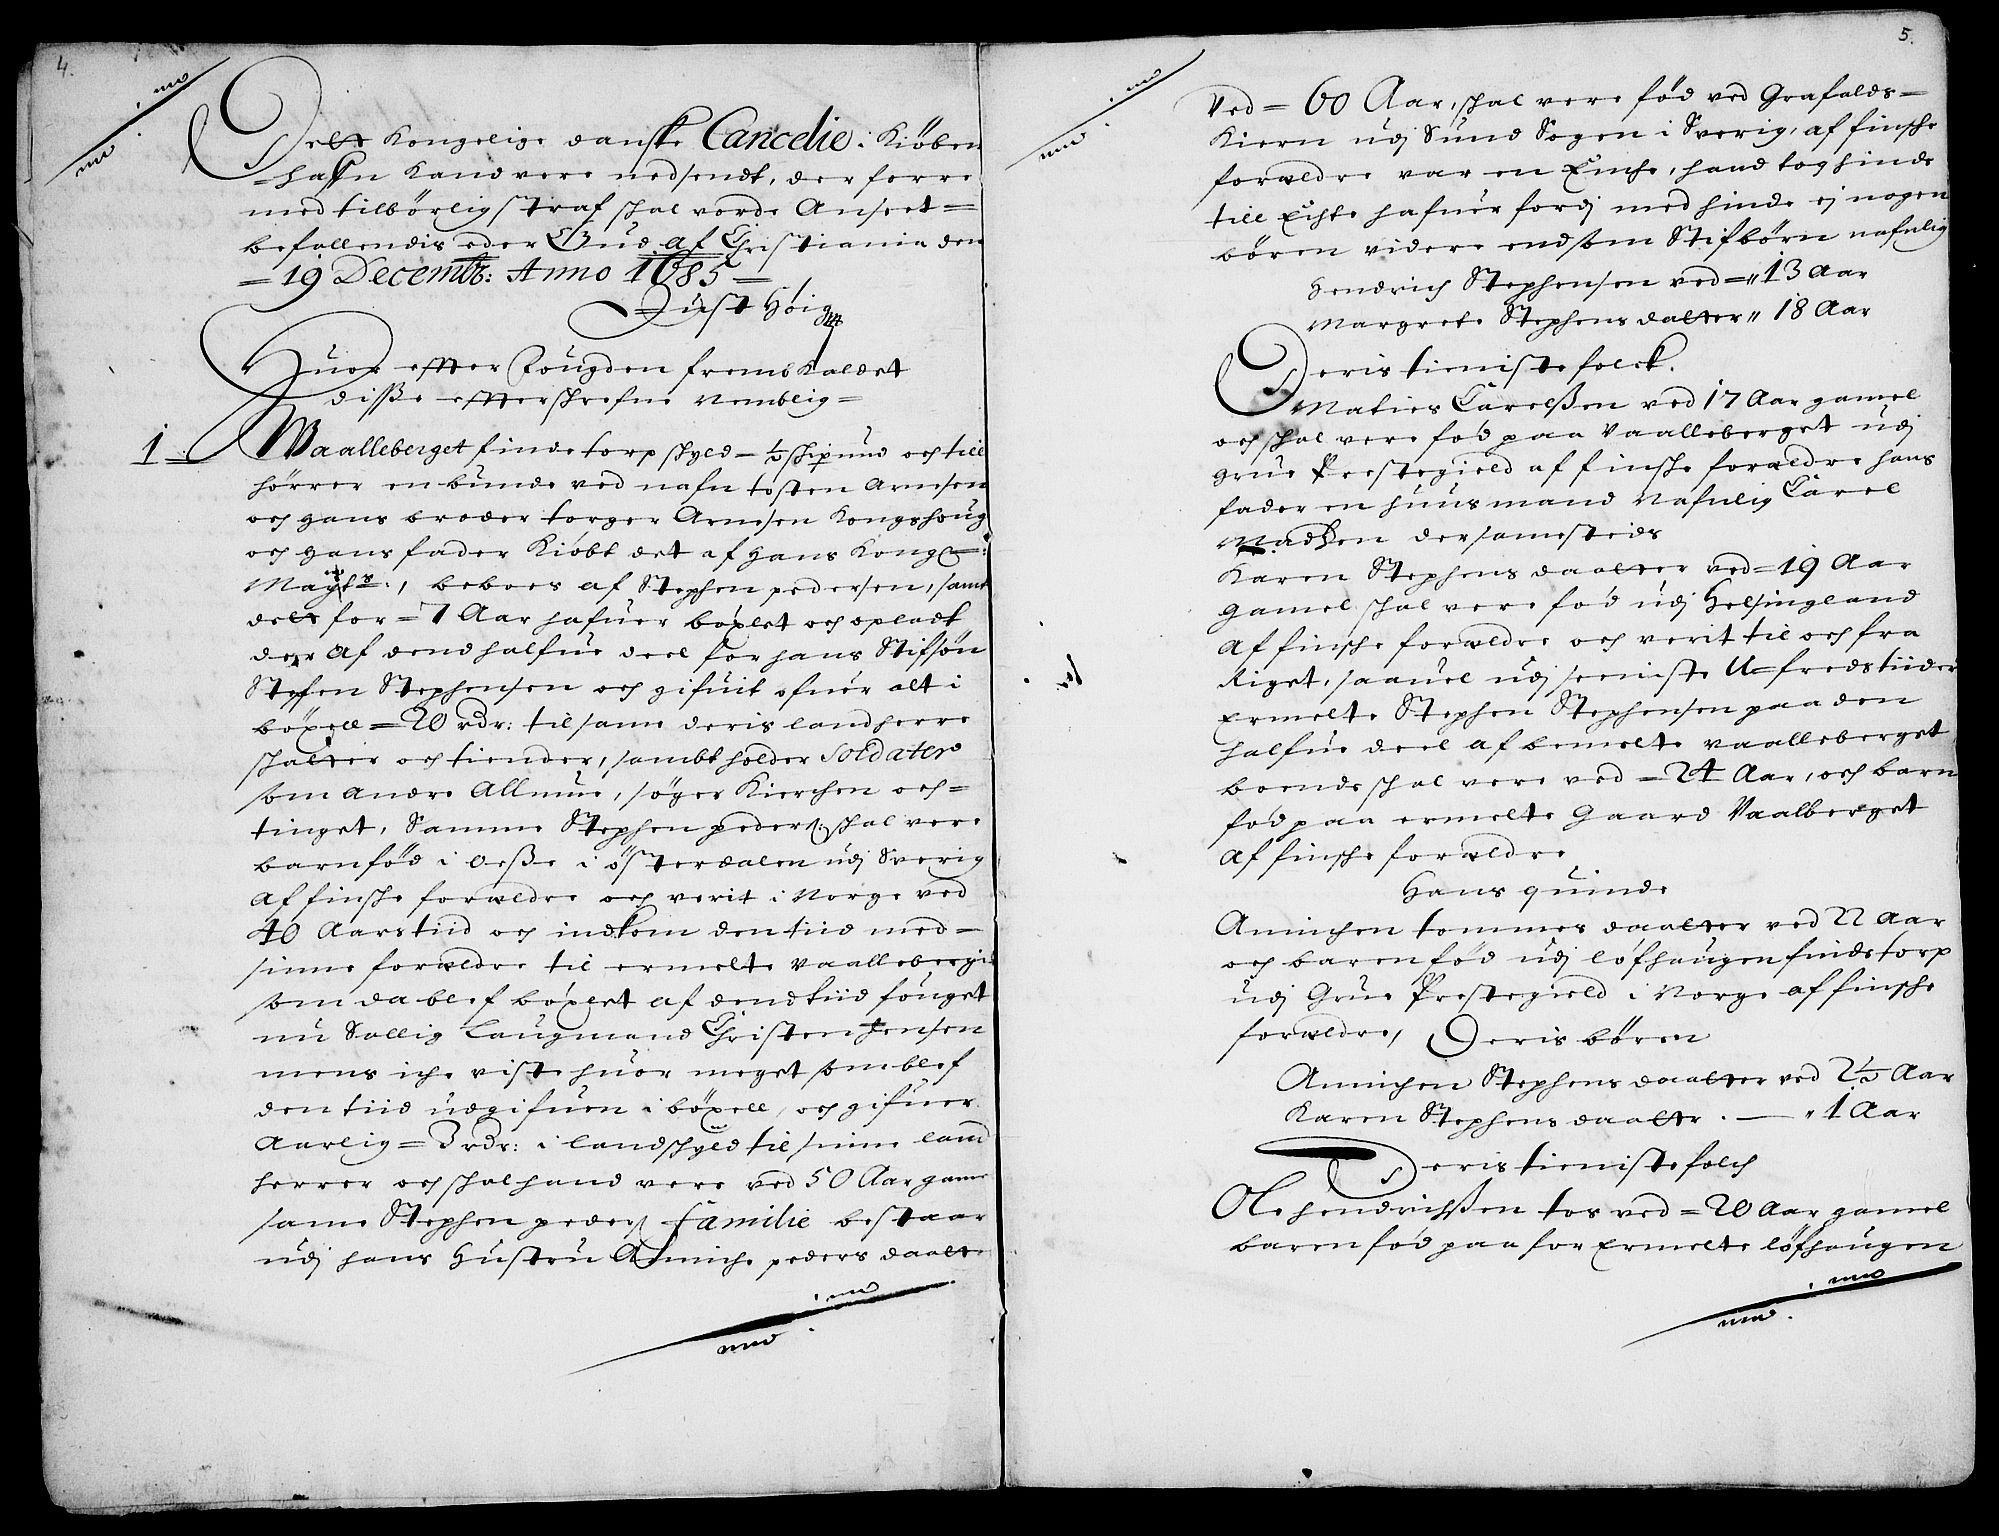 4.
Dette Kongelige danske Cancelie i Kiøben
=hafn Kand vere nedsendt, der forre
med tilbörlig straf schal vorde Anseet=
befallendis eder Gud. af Christiania den
=19 Decembr: Anno 1685=
Just Höig
Huor effter Fougden fremb Kaldet
disse effterschrefne Nemblig=
1 Waalleberget finde torp schyld = ½ schipund och till
hörrer en bunde ved nafn tosten Arnesen
och hans broder torger Arnesen Kongshoug
och hans fader Kiöbt det af hans Kong:
Mayts:, beboes af Stephen pedersen, samt
dett for = 7 Aar hafuer böxlet och opladt
der af dend halfue deel for hans Stifsön
Stefen Stephensen och gifuit ofuer alt i
böxell = 20 rdr: til samme deris landherre
schatter och tiender, sambt holder Soldater
som andre Allmue, söger Kierchen och=
tinget, Samme Stephen peders: schal vere
barnföd i Oesse i österdalen udj Sverig
af finsche forældre och verit i Norge ved
40 Aars tiid och indkom den tiid med=
sinne forældre til ermelte Vaalleberget
som da blef böxlet af dend tiid fouget
nu Sallig Laugmand Christen Jensen
mens iche viste huor meget som blef
den tiid udgifuen i böxell, och gifuer
Aarlig = 3 rdr: i landschyld til sinne land
herrer och schal hand vere ved 50 Aar gamel
samme Stephen peders Familie bestaar
udj hans Hustru Anniche peders daatter
5.
Ved = 60 Aar, schal vere föd ved Grafalds=
Kiern udj Sund Sogen i Sverig, af finsche
forældre var en Enche, hand tog hinde
till Echte hafuer fordj med hinde ej nogen
bören videre endsom Stifbörn nafnlig
Hendrich Stephensen ved = " 13 Aar
Margrete Stephens datter " 18 Aar
Deris tieniste folck.
Maties Carelssen ved 17 Aar gamel
och schal vere föd paa Vaalleberget udj
Grue Prestegield af finsche forældre hans
fader en huusmand Nafnlig Carel
Madsen dersamesteds
Karen Stephens daatter ved = 19 Aar
gamel schal vere föd udj Helsingland
af finsche forældre och verit til och fra
Riget, saauel udj seeniste U=fredstiider
Ermelte Stephen Stephensen paa den
halfue deel af bemelte Vaalleberget
boende schal vere ved = 24 Aar, och barn
föd paa ermelte Gaard Vaalberget
af finsche forældre
Hans quinde
Annichen tommes daatter ved 22 Aar
och baren föd udj löfhaugen findetorp
udj Grue Prestegield i Norge af finsche
forældre, Deris bören
Annichen Stephens daatter ved 2½ Aar
Karen Stephens daatter. — " 1 Aar
Deris tieniste folch
Ole hendrichssen tos ved = 20 Aar gamel
baren föd paa for Ermelte löfhaugen